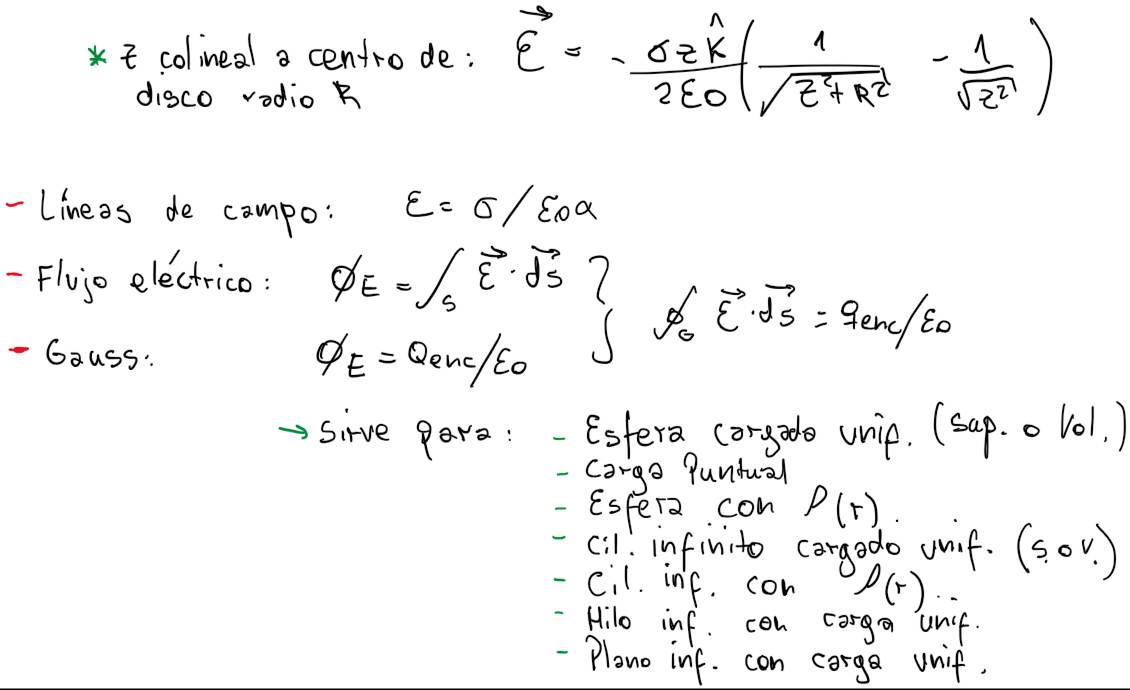 * z colineal a centro de: $\vec{E} = -\frac{\sigma z \hat{K}}{2\varepsilon_0}\left(\frac{1}{\sqrt{z^2+R^2}} - \frac{1}{\sqrt{z^2}}\right)$
disco radio R
- Líneas de campo: E = σ/ε₀α
- Flujo eléctrico: $\phi_E = \int_S \vec{E}\cdot\vec{ds}$ } $\oint_G \vec{E}\cdot\vec{ds} = q_{enc}/\varepsilon_0$
- Gauss: $\phi_E = Q_{enc}/\varepsilon_0$
→ Sirve para: - Esfera cargada unif. (Sup. o Vol.)
- Carga Puntual
- Esfera con ρ(r).
- Cil. infinito cargado unif. (S. o V.)
- Cil. inf. con ρ(r)..
- Hilo inf. con carga unif.
- Plano inf. con carga unif.